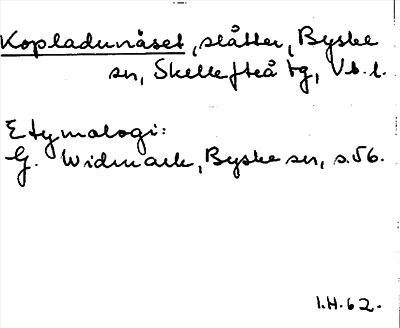 Kopladunäset, slåtter, Byske
sn, Skellefteå tg, Vb. l.
Etymologi:
G. Widmark, Byske sn, s. 56.
I.H. 62.